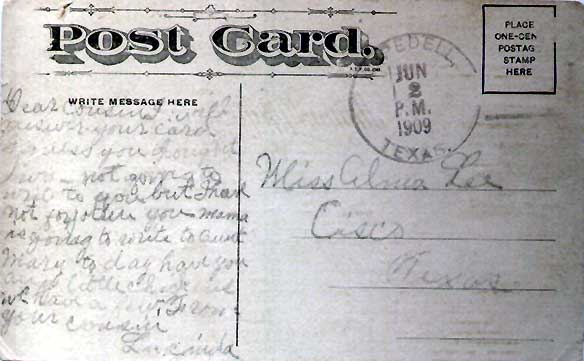 Post Card.
PLACE
ONE-CEN
POSTAG
STAMP
HERE
WRITE MESSAGE HERE
EDELL,
JUN
2
P.M.
1909
TEXAS.
Dear Cousin I will
answer your card
guess you thought
I was not going to
write to you but I have
not forgotten you mama
is going to write to aunt
Mary to day have you
got little chickens
we have a few From
your cousin
Lucinda
Miss Alma Lee
Cisco
Texas